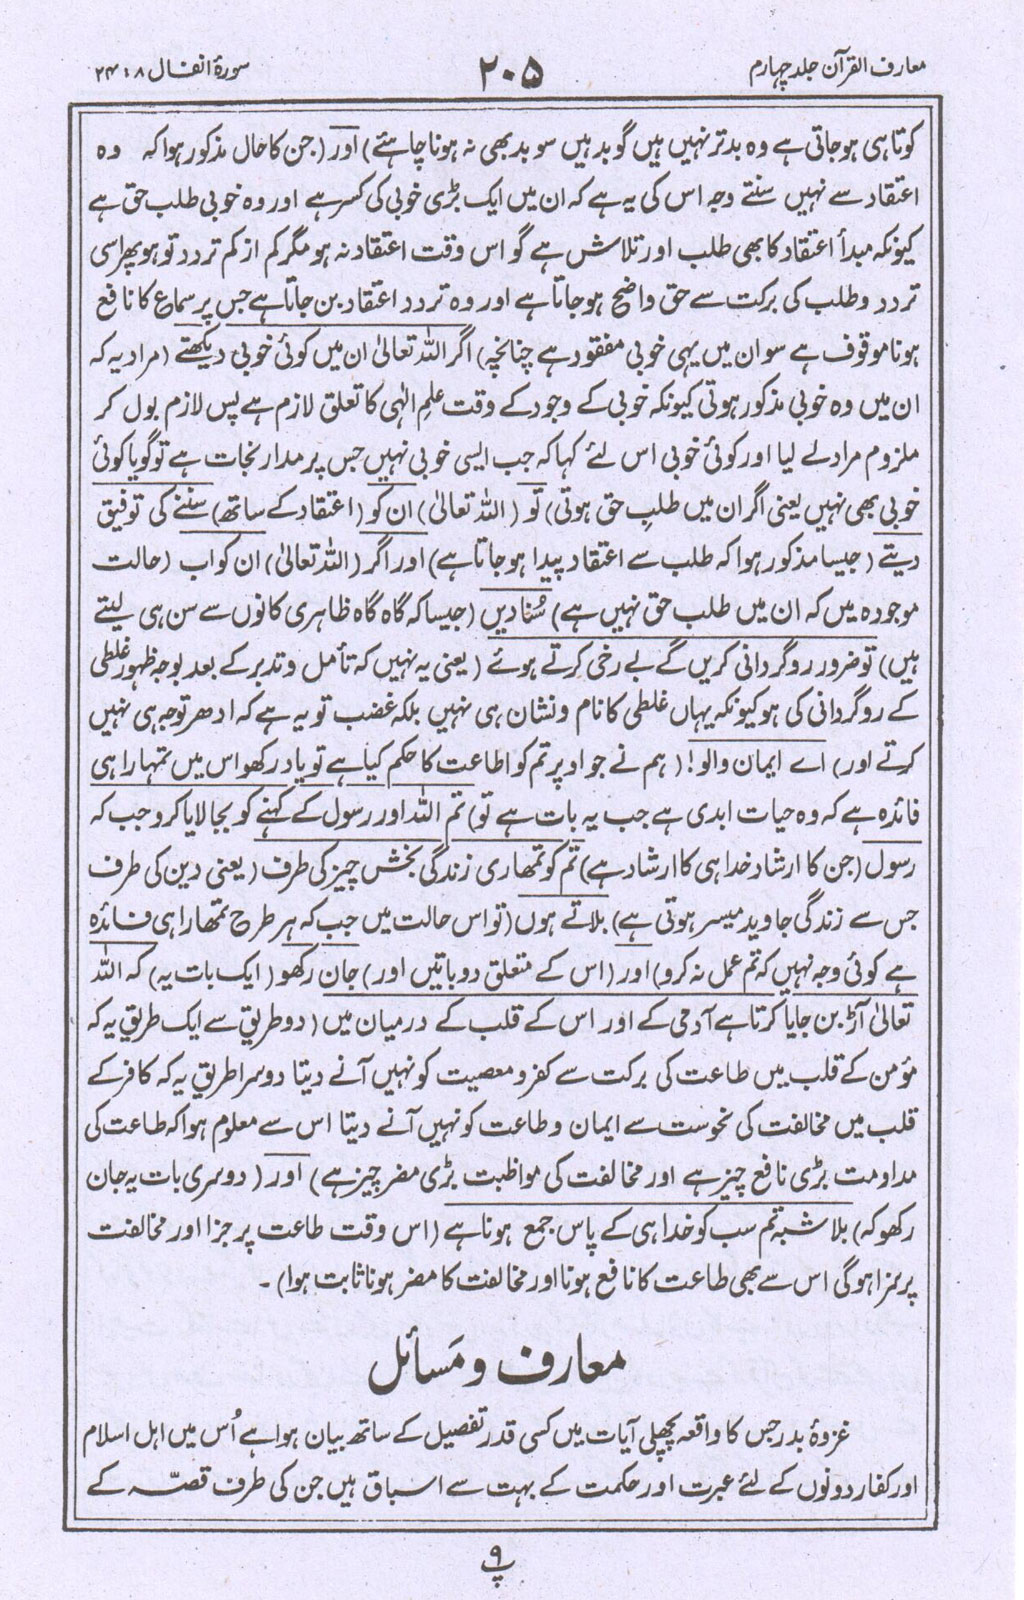 معارف القرآن جلد چہارم
۲۰۵
سورۂ انفال ۸ : ۲۴
کوتاہی ہو جاتی ہے وہ بدتر نہیں ہیں گو بد ہیں سو بد بھی نہ ہونا چاہئے) اور (جن کا حال مذکور ہوا کہ وہ
اعتقاد سے نہیں سنتے وجہ اس کی یہ ہے کہ ان میں ایک بڑی خوبی کی کسر ہے اور وہ خوبی طلب حق ہے
کیونکہ مبدأ اعتقاد کا بھی طلب اور تلاش ہے گو اس وقت اعتقاد نہ ہو مگر کم از کم تردد تو ہو پھر اسی
تردد و طلب کی برکت سے حق واضح ہو جاتا ہے اور وہ تردد اعتقاد بن جاتا ہے جس پر سماع کا نافع
ہونا موقوف ہے سو ان میں یہی خوبی مفقود ہے چنانچہ) اگر اللہ تعالیٰ ان میں کوئی خوبی دیکھتے (مراد یہ کہ
ان میں وہ خوبی مذکور ہوتی کیونکہ خوبی کے وجود کے وقت علمِ الٰہی کا تعلق لازم ہے پس لازم بول کر
ملزوم مراد لے لیا اور کوئی خوبی اس لئے کہا کہ جب ایسی خوبی نہیں جس پر مدار نجات ہے تو گویا کوئی
خوبی بھی نہیں یعنی اگر ان میں طلبِ حق ہوتی) تو (اللہ تعالیٰ) ان کو (اعتقاد کے ساتھ) سننے کی توفیق
دیتے (جیسا مذکور ہوا کہ طلب سے اعتقاد پیدا ہو جاتا ہے) اور اگر (اللہ تعالیٰ) ان کو اب (حالت
موجودہ میں کہ ان میں طلب حق نہیں ہے) سُنا دیں (جیسا کہ گاہ گاہ ظاہری کانوں سے سن ہی لیتے
ہیں) تو ضرور روگردانی کریں گے بے رخی کرتے ہوئے (یعنی یہ نہیں کہ تأمل و تدبر کے بعد بوجہ ظہور غلطی
کے روگردانی کی ہو کیونکہ یہاں غلطی کا نام و نشان ہی نہیں بلکہ غضب تو یہ ہے کہ ادھر توجہ ہی نہیں
کرتے اور) اے ایمان والو! (ہم نے جو اوپر تم کو اطاعت کا حکم کیا ہے تو یاد رکھو اس میں تمہارا ہی
فائدہ ہے کہ وہ حیات ابدی ہے جب یہ بات ہے تو) تم اللہ اور رسول کے کہنے کو بجا لایا کرو جب کہ
رسول (جن کا ارشاد خدا ہی کا ارشاد ہے) تم کو تمھاری زندگی بخش چیز کی طرف (یعنی دین کی طرف
جس سے زندگی جاوید میسر ہوتی ہے) بلاتے ہوں (تو اس حالت میں جب کہ ہر طرح تمھارا ہی فائدہ
ہے کوئی وجہ نہیں کہ تم عمل نہ کرو) اور (اس کے متعلق دو باتیں اور) جان رکھو (ایک بات یہ) کہ اللہ
تعالیٰ آڑ بن جایا کرتا ہے آدمی کے اور اس کے قلب کے درمیان میں (دو طریق سے ایک طریق یہ کہ
مؤمن کے قلب میں طاعت کی برکت سے کفر و معصیت کو نہیں آنے دیتا دوسرا طریق یہ کہ کافر کے
قلب میں مخالفت کی نحوست سے ایمان و طاعت کو نہیں آنے دیتا اس سے معلوم ہوا کہ طاعت کی
مداومت بڑی نافع چیز ہے اور مخالفت کی مواظبت بڑی مضر چیز ہے) اور (دوسری بات یہ جان
رکھو کہ) بلا شبہ تم سب کو خدا ہی کے پاس جمع ہونا ہے (اس وقت طاعت پر جزا اور مخالفت
پر سزا ہوگی اس سے بھی طاعت کا نافع ہونا اور مخالفت کا مضر ہونا ثابت ہوا)۔
معارف و مَسائل
غزوۂ بدر جس کا واقعہ پچھلی آیات میں کسی قدر تفصیل کے ساتھ بیان ہوا ہے اُس میں اہل اسلام
اور کفار دونوں کے لئے عبرت اور حکمت کے بہت سے اسباق ہیں جن کی طرف قصّہ کے
پ ۹